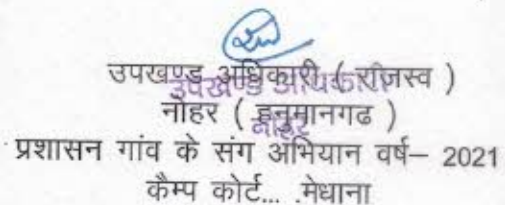 उपखण्ड अधिकारी ( राजस्व )
उपखण्ड अधिकारी
नोहर ( हनुमानगढ )
नोहर
प्रशासन गांव के संग अभियान वर्ष– 2021
कैम्प कोर्ट... .मेधाना